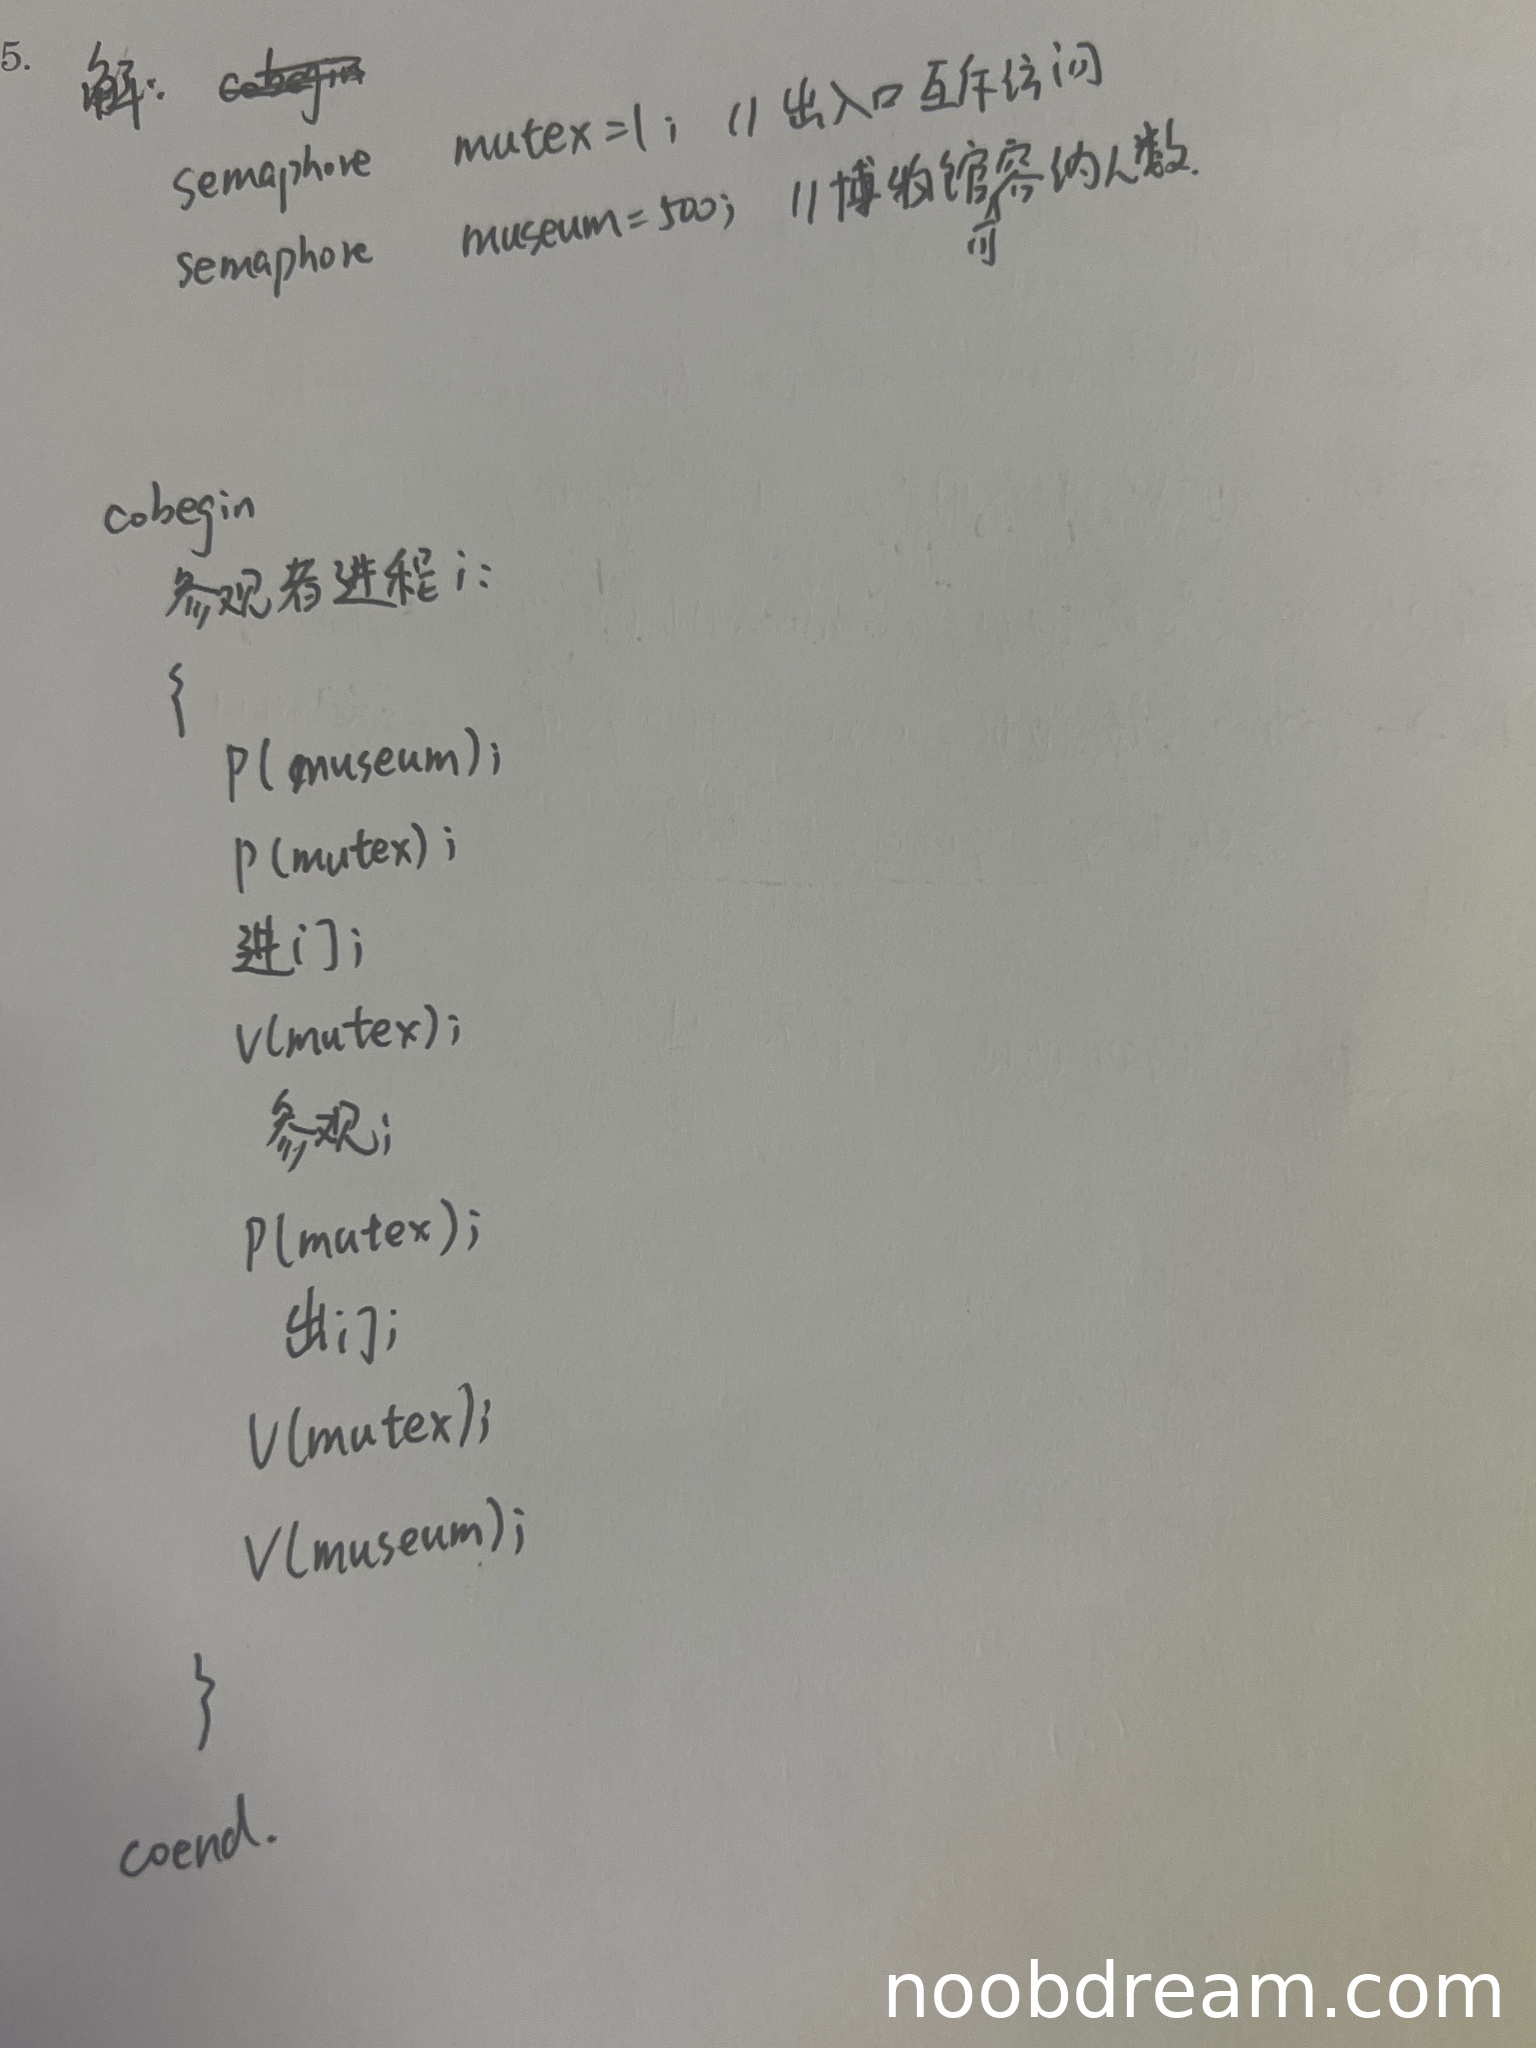 5. 解: cobegin
semaphore mutex=1; // 出入口互斥访问
semaphore museum=500; // 博物馆可容纳人数.
cobegin
参观者进程i:
{
P(museum);
P(mutex);
进门;
V(mutex);
参观;
P(mutex);
出门;
V(mutex);
V(museum);
}
coend.
noobdream.com